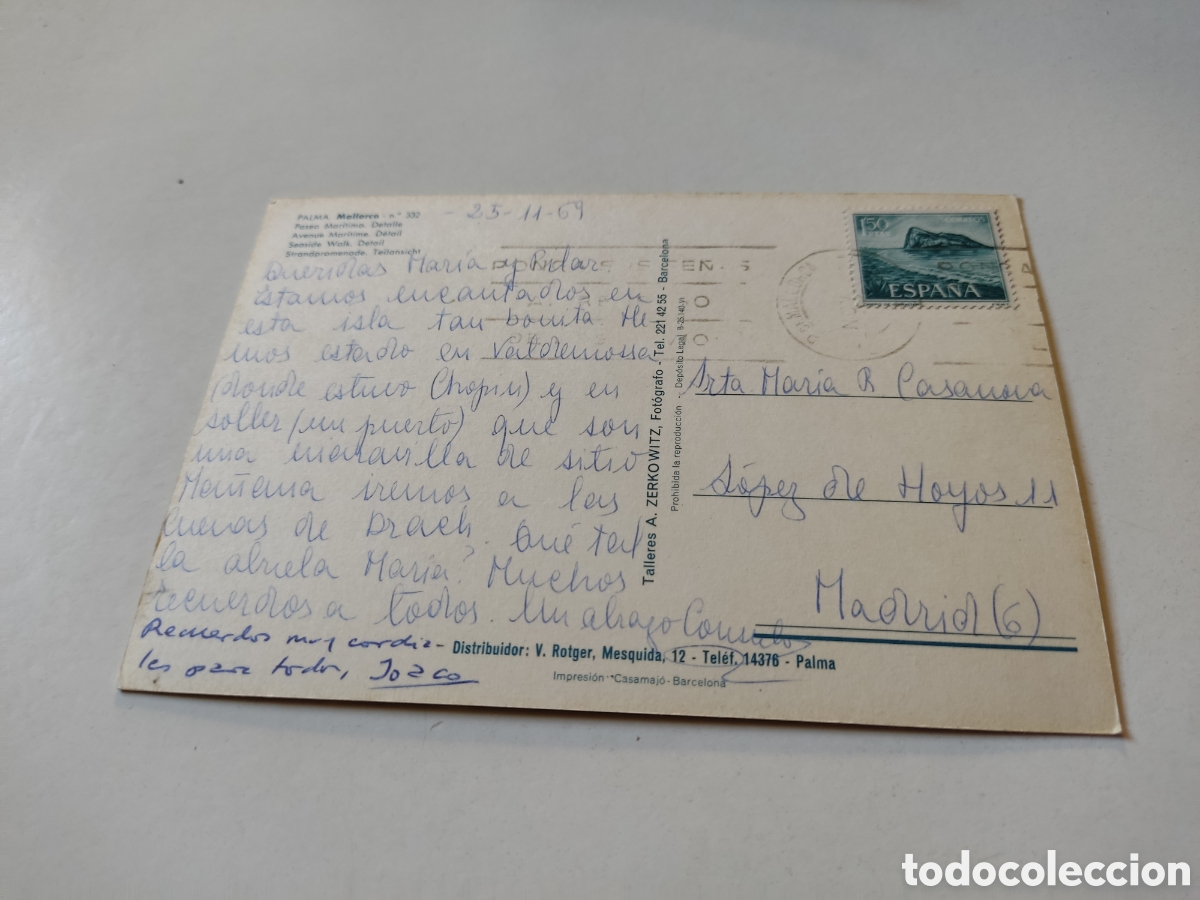 PALMA. Mallorca - n° 332
Paseo Marítimo. Detalle
Avenue Maritime. Détail
Seaside Walk. Detail
Strandpromenade. Teilansicht
- 25-11-69
1,50
PTAS
CORREOS
ESPAÑA
Queridas María y Pidar
Estamos encantados en
esta isla tan bonita He
mos estado en Valdemossa
(donde estuvo Chopin) y en
soller (un puerto) que son
una maravilla de sitio
Mañana iremos a las
Cuevas de Drach. Qué tal
la abuela María? Muchos
recuerdos a todos. Un abrazo Consuelo
Recuerdos muy cordia-
les para todos, Joaco
Talleres A. ZERKOWITZ, Fotógrafo - Tel. 221 42 55 - Barcelona
Prohibida la reproducción - Depósito Legal
Srta María R Casanova
López de Hoyos 11
Madrid (6)
Distribuidor: V. Rotger, Mesquida, 12 - Teléf. 14376 - Palma
Impresión Casamajó - Barcelona
todocoleccion.net